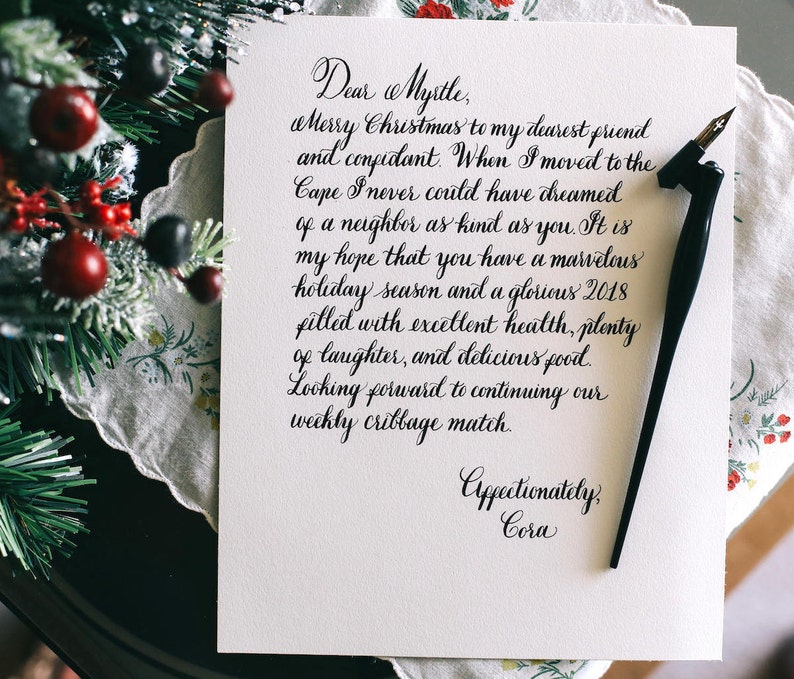 Dear Myrtle,
Merry Christmas to my dearest friend
and confidant. When I moved to the
Cape I never could have dreamed
of a neighbor as kind as you. It is
my hope that you have a marvelous
holiday season and a glorious 2018
filled with excellent health, plenty
of laughter, and delicious food.
Looking forward to continuing our
weekly cribbage match.
Affectionately,
Cora